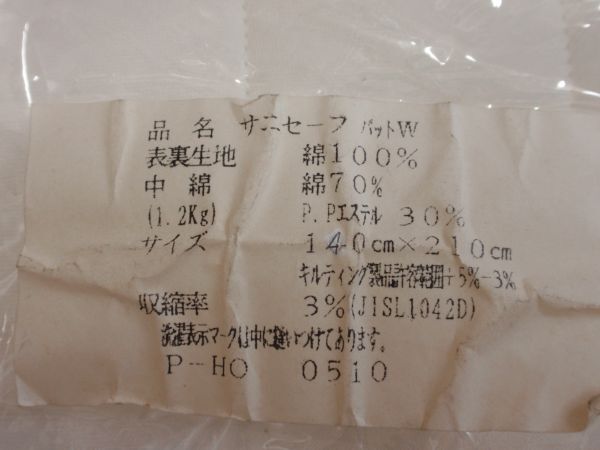 品名 サニセーフ パットW
表裏生地 綿100%
中綿 綿70%
(1.2Kg) P.Pエステル 30%
サイズ 140cm×210cm
キルティング製品許容範囲+5%-3%
収縮率 3%(JISL1042D)
洗濯表示マークは中に縫いつけてあります。
P-HO 0510